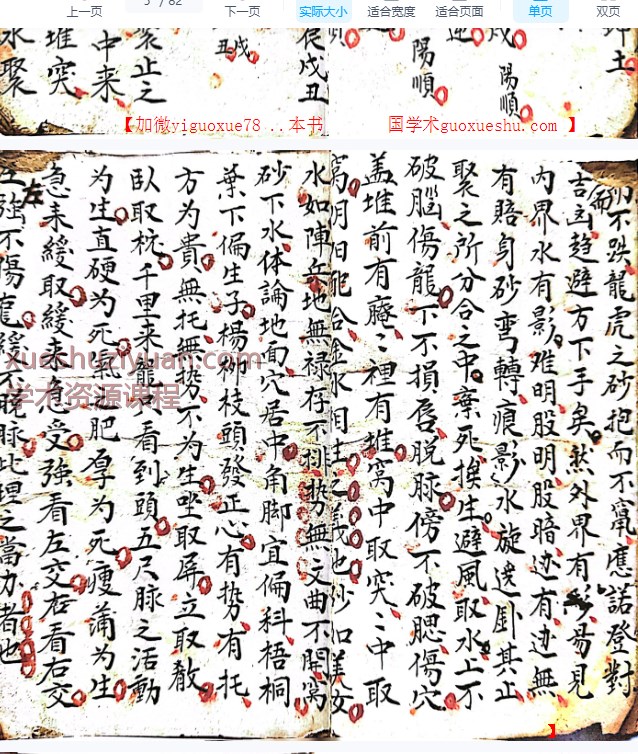 上一页
5 / 82
下一页
实际大小
适合宽度
适合页面
单页
双页
陽順
陽順
戌
辰戌丑
戌
丑
裳止之
中来
堆突
水聚
【加微yiguoxue78 ..本书
国学术guoxueshu.com 】
不跌龍虎之砂抱而不竄應諾登對
吉凶趋避方下手矣然外界有影易見
内界水有影难明股明股暗边有边無
有賠身砂弯轉痕影水旋遶卧其止
聚之所分合之中棄死挨生避風取水上不
破腦傷龍下不損唇脱脉傍不破腮傷穴
盖堆前有窩〻裡有堆窩中取突〻中取
窩明
水如陣兵地無禄存不排势無文曲不開窝
砂下水体論地面穴居中角脚宜偏科梧桐
葉下偏生子楊柳枝頭發正心有势有托
方为貴無托無势不为生坐取屏立取
臥取枕千里来龍只看到頭五尺脉之活動
为生直硬为死肥厚为死瘦薄为生
急来緩取緩来急受強看左交右看右交
左
強不傷龍緩不脱脉此理之當力者也
xueshuziyuan.com
学术资源课程
】